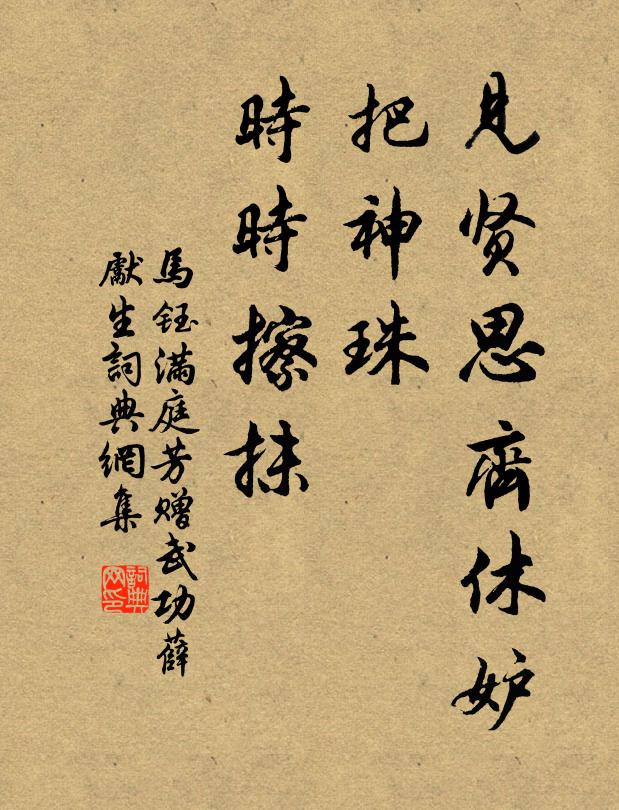 見贤思齊休妒
把神珠
時時擦抹
馬鈺满庭芳赠武功薛
獻生詞典網集
詞典网印